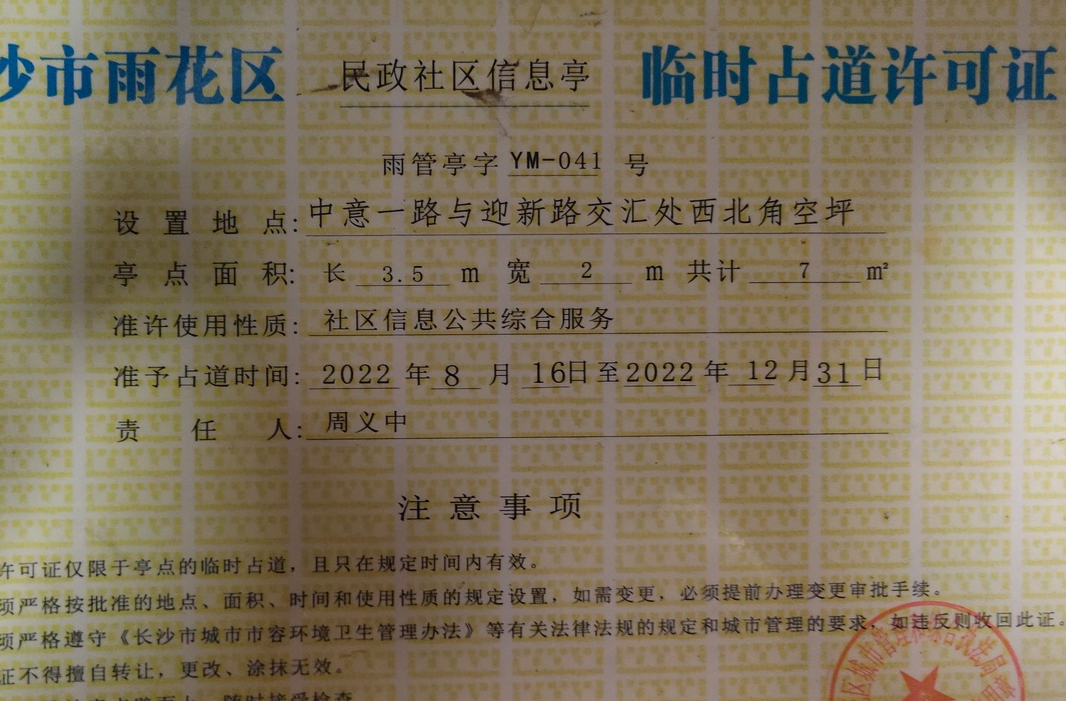 沙市雨花区 民政社区信息亭 临时占道许可证
雨管亭字 YM-041 号
设置地点: 中意一路与迎新路交汇处西北角空坪
亭点面积: 长 3.5 m 宽 2 m 共计 7 m²
准许使用性质: 社区信息公共综合服务
准予占道时间: 2022 年 8 月 16日至2022 年 12 月31日
责任人: 周义中
注意事项
许可证仅限于亭点的临时占道，且只在规定时间内有效。
须严格按批准的地点、面积、时间和使用性质的规定设置，如需变更，必须提前办理变更审批手续。
须严格遵守《长沙市城市市容环境卫生管理办法》等有关法律法规的规定和城市管理的要求，如违反则收回此证。
证不得擅自转让，更改、涂抹无效。
随时接受检查
区城市管理和综合执法局